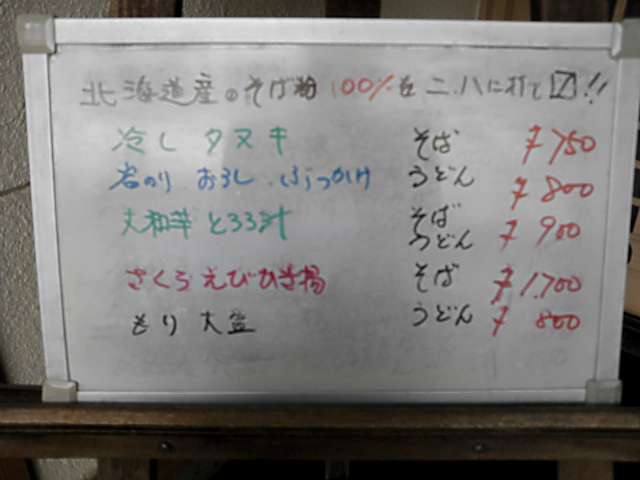 北海道産のそば粉100%を二.八に打て〼!!
冷し タヌキ そば ¥750
岩のり おろし.ぶっかけ うどん ¥800
大和芋 とろろ汁 そば うどん ¥900
さくらえび 揚 そば ¥1,700
もり 大盆 うどん ¥800